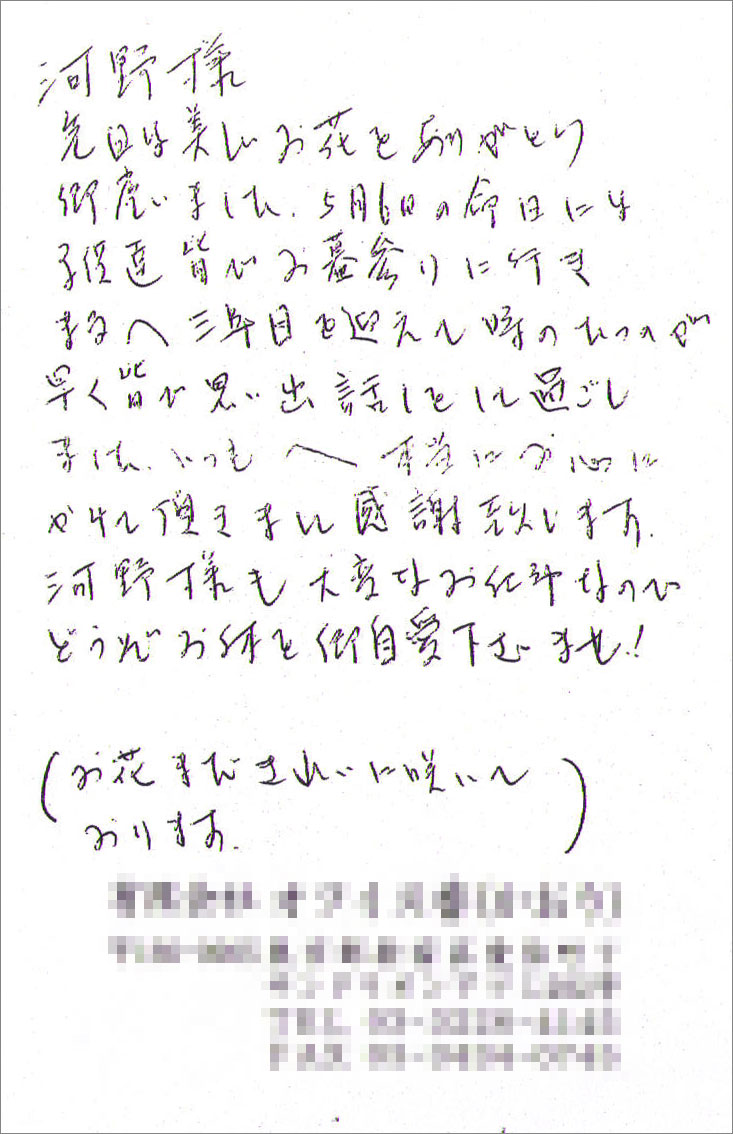 河野様
先日は美しいお花をありがとう
御座いました。5月6日の命日には
子供達皆でお墓参りに行き
三年目を迎えて時のたつのが
早く皆で思い出話しをして過ごし
ました。いつも 本当にお心に
かけて頂きまして感謝致します。
河野様も大変なお仕事なので
どうぞお体を御自愛下さいませ!
(お花まだきれいに咲いて
おります。)